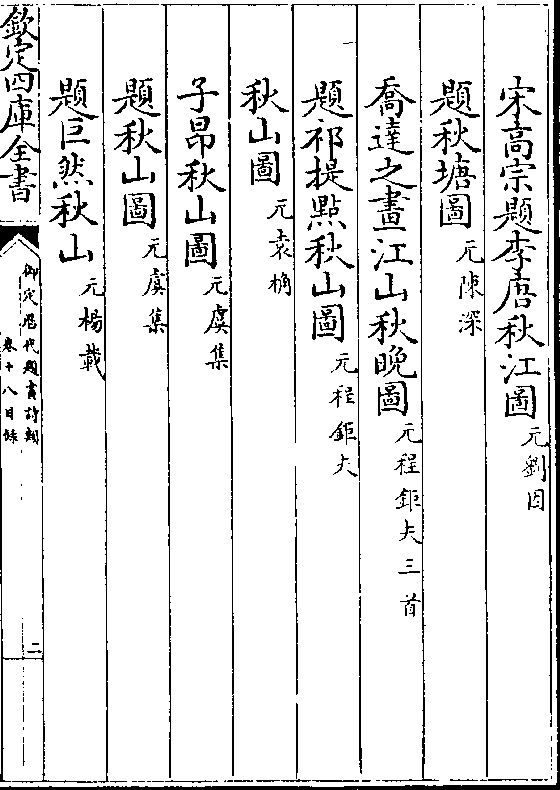 宋高宗題李唐秋江圖 元劉因
題秋塘圖 元陳深
喬達之畫江山秋晚圖 元程鉅夫三首
題祁提點秋山圖 元程鉅夫
秋山圖 元袁桷
子昂秋山圖 元虞集
題秋山圖 元虞集
題巨然秋山 元楊載
欽定四庫全書
御定歴代題畫詩類
卷十八目錄
二